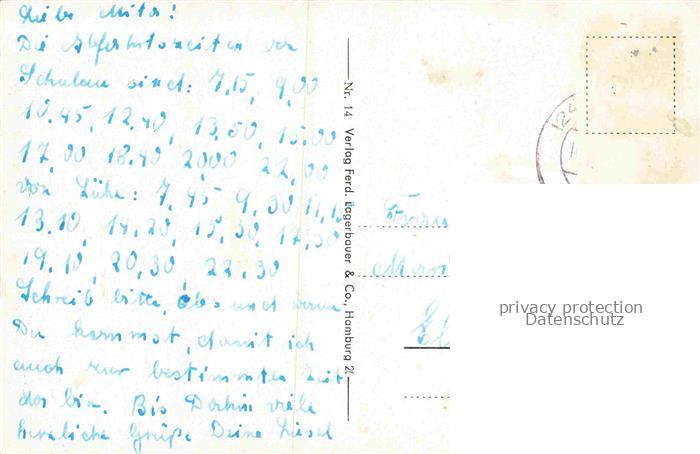 Liebe Mita!
Die Abfahrtszeiten von
Schulau sind: 7,15, 9,00
10.45, 12,40, 13,50, 15.00
17,00 18.40 20,00 22,00
von Lühe: 7,45 9,30 11,1
13.10, 14.20, 15,30, 17.30
19.10, 20,30, 22.30
Schreib bitte, ob und wann
Du kommst, damit ich
auch zur bestimmten Zeit
da bin. Bis Dahin viele
herzliche Grüße Deine Liesel
Nr. 14 Verlag Ferd. Lagerbauer & Co., Hamburg 2
Frau
privacy protection
Datenschutz